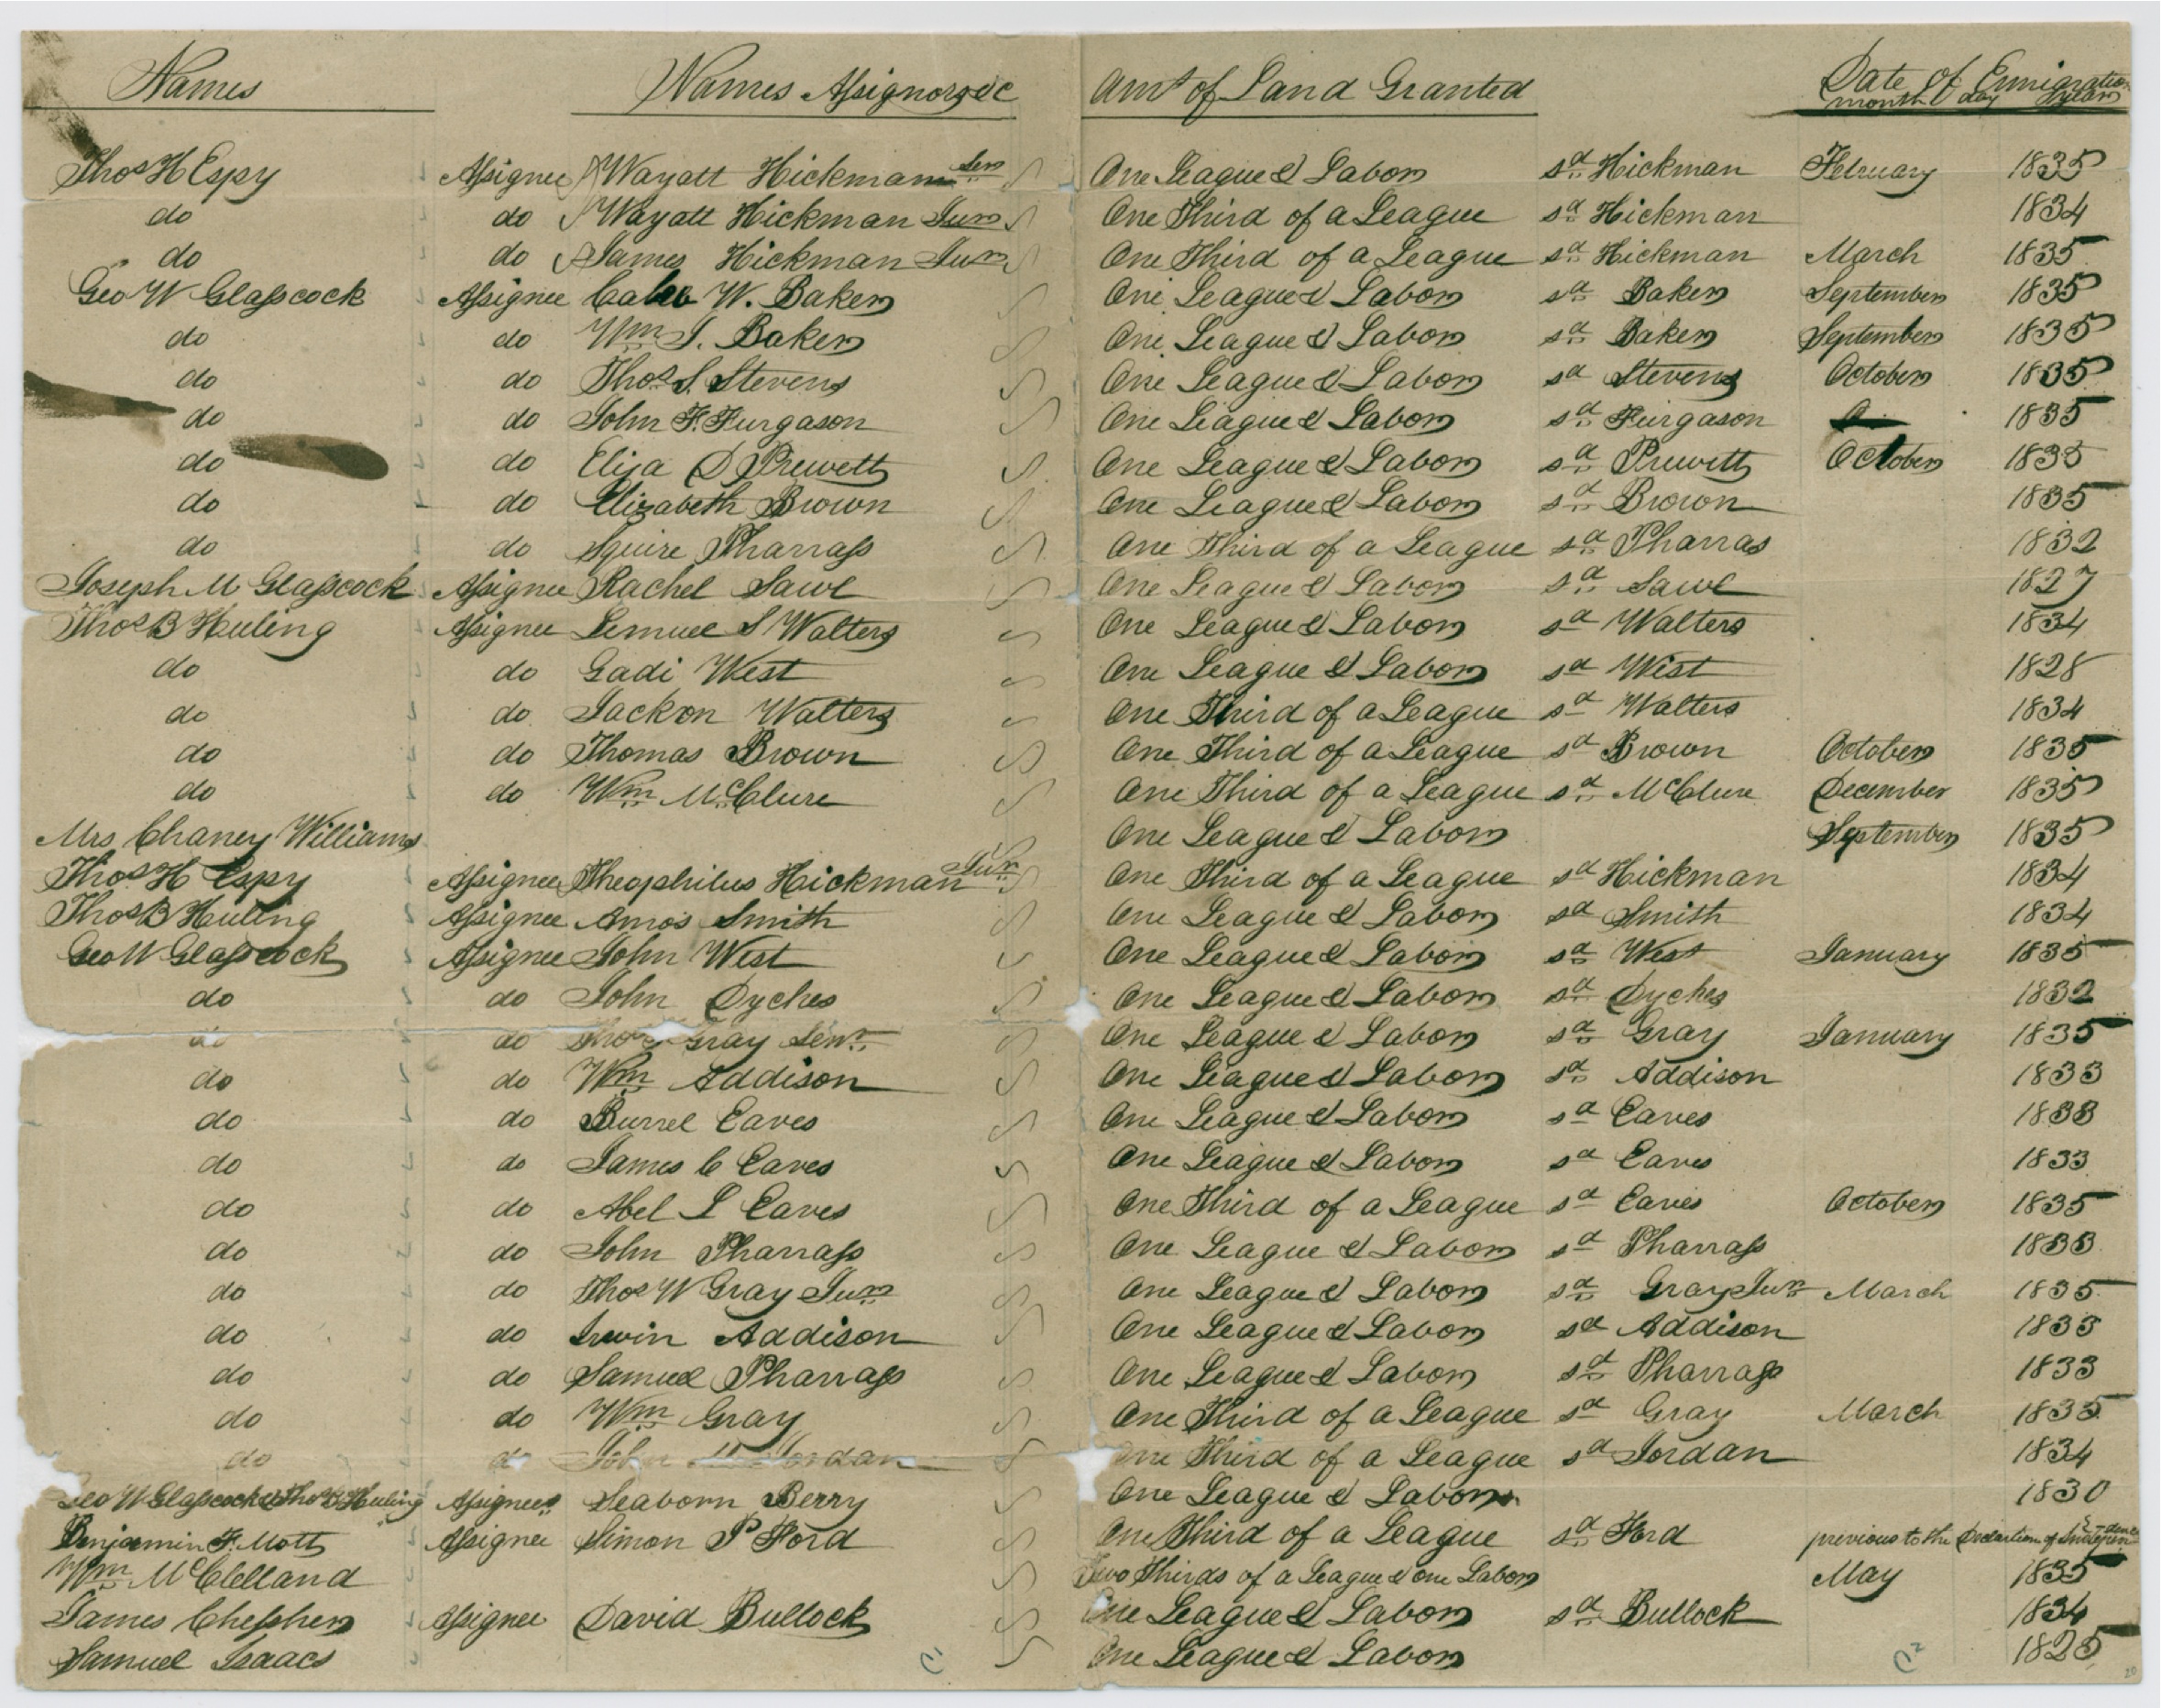 Names Names Assignors &c Amt of Land Granted Date of Emigration
month day years
Thos H Espy Assignee Wayatt Hickman Sen One League & Labor sd Hickman February 1835
do do Wayatt Hickman Jun One Third of a League sd Hickman 1834
do do James Hickman Jun One Third of a League sd Hickman March 1835
Geo W Glasscock Assignee Caleb W. Baker One League & Labor sd Baker September 1835
do do Wm J. Baker One League & Labor sd Baker September 1835
do do Thos S. Stevens One League & Labor sd Stevens October 1835
do do John F. Furgason One League & Labor sd Furgason 1835
do do Eliza D Prewett One League & Labor sd Prewett October 1835
do do Elizabeth Brown One League & Labor sd Brown 1835
do do Squire Pharrass One Third of a League sd Pharras 1832
Joseph M Glasscock Assignee Rachel Sawl One League & Labor sd Sawl 1827
Thos B Huling Assignee Lemuel S Walters One League & Labor sd Walters 1834
do do Gadi West One League & Labor sd West 1828
do do Jackson Walters One Third of a League sd Walters 1834
do do Thomas Brown One Third of a League sd Brown October 1835
do do Wm McClure One Third of a League sd McClure December 1835
Mrs Chaney Williams One League & Labor September 1835
Thos H Espy Assignee Theophilus Hickman Jun One Third of a League sd Hickman 1834
Thos B Huling Assignee Amos Smith One League & Labor sd Smith 1834
Geo W Glasscock Assignee John West One League & Labor sd West January 1835
do do John Dyches One League & Labor sd Dyches 1832
do do Thos Gray Senr One League & Labor sd Gray January 1835
do do Wm Addison One League & Labor sd Addison 1833
do do Burrel Eaves One League & Labor sd Eaves 1833
do do James C Eaves One League & Labor sd Eaves 1833
do do Abel L Eaves One Third of a League sd Eaves October 1835
do do John Pharrass One League & Labor sd Pharrass 1833
do do Thos W Gray Jun One League & Labor sd Gray Jun March 1835
do do Irwin Addison One League & Labor sd Addison 1833
do do Samuel Pharrass One League & Labor sd Pharrass 1833
do do Wm Gray One Third of a League sd Gray March 1835
do do John Jordan One Third of a League sd Jordan 1834
Geo W Glasscock & Thos B Huling Assignees Seaborn Berry One League & Labor 1830
Benjamin F. Mott Assignee Simon P Ford One Third of a League sd Ford previous to the Declaration of Independence
Wm McClelland Two Thirds of a League & one Labor May 1835
James Chessher Assignee David Bullock One League & Labor sd Bullock 1834
Samuel Isaacs One League & Labor 1825